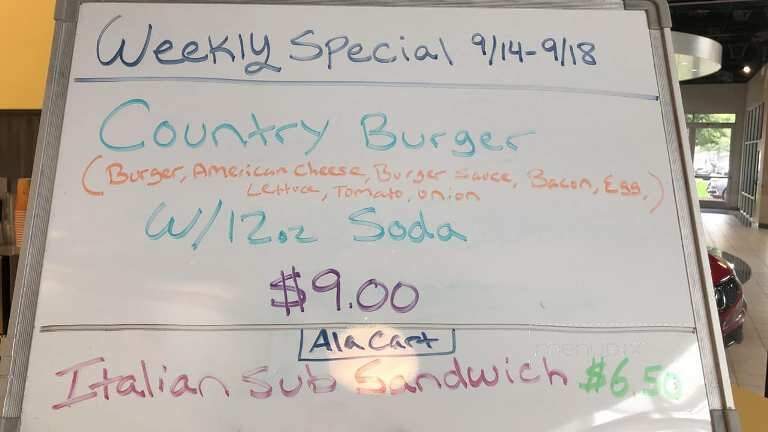 Weekly Special 9/14-9/18
Country Burger
(Burger, American Cheese, Burger Sauce, Bacon, Egg,
Lettuce, Tomato, onion)
W/12oz Soda
$9.00
Ala Cart
Italian Sub Sandwich $6.50